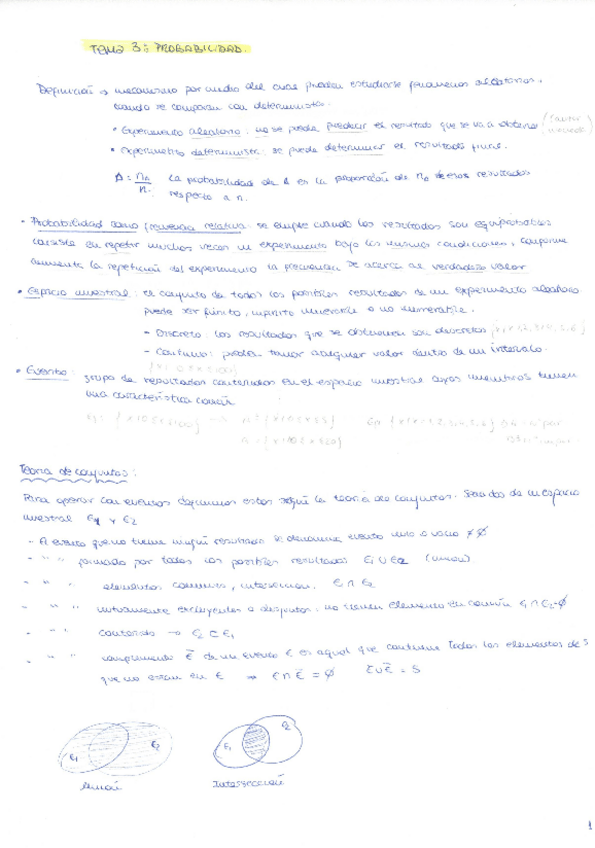 TEMA 3: PROBABILIDAD.
Definición → mecanismo por medio del cual pueden estudiarse fenómenos aleatorios,
cuando se comparan con deterministas.
• Experimento aleatorio: no se puede predecir el resultado que se va a obtener
• experimento determinista: se puede determinar el resultado final.
La probabilidad de A es la proporción de resultados
respecto a n.
• Probabilidad como frecuencia relativa: se emplea cuando los resultados son equiprobables
consiste en repetir muchas veces un experimento bajo las mismas condiciones, conforme
aumenta la repetición del experimento la frecuencia se acerca al verdadero valor
• Espacio muestral: el conjunto de todos los posibles resultados de un experimento aleatorio
puede ser finito, infinito numerable o no numerable.
- Discreto: los resultados que se obtienen son discretos
- Continuo: pueden tomar cualquier valor dentro de un intervalo.
• Evento: grupo de resultados contenidos en el espacio muestral cuyos miembros tienen
una característica común
Teoría de conjuntos:
Para operar con eventos definimos estos según la teoría de conjuntos. Sean dos de un espacio
muestral E1 y E2
- A evento que no tiene ningún resultado se denomina evento nulo o vacío ∅
- " " formado por todos los posibles resultados E1 ∪ E2 (unión)
- " " elementos comunes, intersección. E1 ∩ E2
- " " mutuamente excluyentes o disjuntos: no tienen elemento en común E1 ∩ E2 = ∅
- " " contenido → E2 ⊂ E1
- " " complemento Ē de un evento E es aquel que contiene todos los elementos de S
que no están en E → E ∩ Ē = ∅ E ∪ Ē = S
E1 E2 E1 E2
Unión Intersección
1